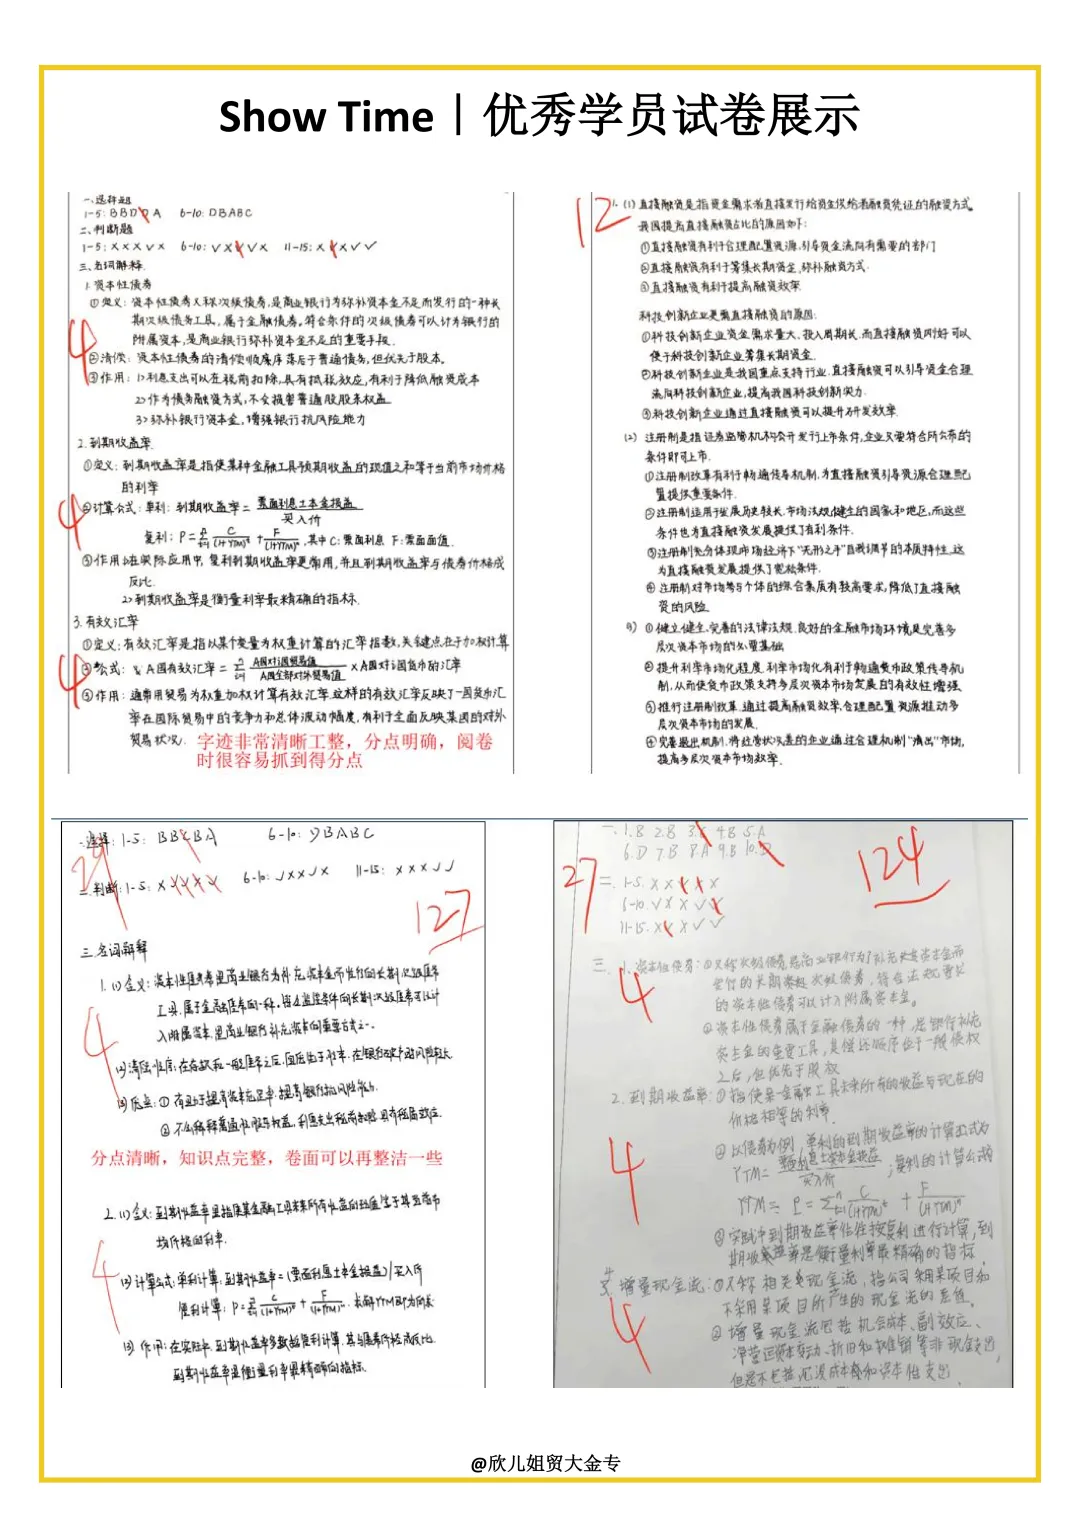 Show Time｜优秀学员试卷展示
一、选择题
1-5: BBDDA 6-10: DBABC
二、判断题
1-5: ×××√× 6-10: √××√× 11-15: ×××√√
三、名词解释.
1. 资本性债券
①定义: 资本性债券又称次级债券,是商业银行为弥补资本金不足而发行的一种长
期次级债务工具, 属于金融债券。符合条件的次级债券可以计为银行的
附属资本, 是商业银行弥补资本金不足的重要手段.
②清偿: 资本性债券的清偿顺序落后于普通债务, 但优先于股本。
③作用: 1>利息支出可以在税前扣除,具有抵税效应,有利于降低融资成本
2>作为债务融资方式,不会损害普通股股东权益
3>弥补银行资本金, 增强银行抗风险能力
4
2. 到期收益率.
①定义: 到期收益率是指使某种金融工具预期收益的现值之和等于当前市场价格
的利率
②计算公式: 单利: 到期收益率 = 票面利息±本金损益 / 买入价
复利: P = Σ C/(1+YTM)^t + F/(1+YTM)^n, 其中C: 票面利息 F: 票面面值.
③作用: 1>在实际应用中, 复利到期收益率更常用, 并且到期收益率与债券价格成
反比.
2>到期收益率是衡量利率最精确的指标.
4
3. 有效汇率
①定义: 有效汇率是指以某个变量为权重计算的汇率指数,关键点在于加权计算
②公式: A国有效汇率 = Σ A国对i国贸易值 / A国全部对外贸易值 × A国对i国货币的汇率
③作用: 通常用贸易为权重加权计算有效汇率.这样的有效汇率反映了一国货币汇
率在国际贸易中的竞争力和总体波动幅度,有利于全面反映某国的对外
贸易状况.
4
字迹非常清晰工整，分点明确，阅卷
时很容易抓到得分点
12
1. (1) 直接融资是指资金需求者直接发行给资金供给者融资凭证的融资方式.
我国提高直接融资占比的原因如下:
①直接融资有利于合理配置资源,引导资金流向有需要的部门
②直接融资有利于筹集长期资金, 弥补融资方式.
③直接融资有利于提高融资效率.
科技创新企业更需直接融资的原因:
①科技创新企业资金需求量大, 投入周期长. 而直接融资刚好可以
便于科技创新企业筹集长期资金.
②科技创新企业是我国重点支持行业. 直接融资可以引导资金合理
流向科技创新企业, 提高我国科技创新实力.
③科技创新企业通过直接融资可以提升研发效率.
(2) 注册制是指证券监管机构公开发行上市条件,企业只要符合所公布的
条件即可上市.
①注册制改革有利于畅通传导机制,为直接融资引导资源合理配
置提供重要条件.
②注册制适用于发展历史较长,市场法规健全的国家和地区,而这些
条件也为直接融资发展提供了有利条件.
③注册制充分体现市场经济下“无形之手”自我调节的本质特性,这
为直接融资发展提供了宽松条件.
④注册制对市场参与个体的综合素质有较高要求,降低了直接融
资的风险.
3) ①健立健全,完善的法律法规.良好的金融市场环境是完善多
层次资本市场的必要基础.
②提升利率市场化程度.利率市场化有利于畅通货币政策传导机
制,从而使货币政策支持多层次资本市场发展的有效性增强.
③推行注册制改革.通过提高融资效率,合理配置资源推动多
层次资本市场的发展.
④完善退出机制,将经营状况差的企业通过合理机制“清出”市场,
提高多层次资本市场效率.
一选择: 1-5: BBCBA 6-10: DBABC
29
二.判断: 1-5: ×√√√√ 6-10: √××√× 11-15: ×××√√
127
三.名词解释
1. (1)含义: 资本性债券是商业银行为补充资本金而发行的长期次级债券
工具.属于金融债券的一种.
入附属资本.是商业银行补充资本的重要方式之一.
4
(3)优点: ①有利于提高资本充足率.提高银行抗风险能力.
分点清晰，知识点完整，卷面可以再整洁一些
2. (1)含义:
均价格的利率.
(2)计算公式:单利计算.到期收益率=(票面利息±本金损益)/买入价
复利计算: P=Σ C/(1+YTM)^t + F/(1+YTM)^n.
(3)作用:在实际中.到期收益率多数始复利计算.其与债券价格成反比.
到期收益率是衡量利率最精确的指标.
4
一. 1.B 2.B 3.C 4.B 5.A
6.D 7.B 8.A 9.B 10.D
27
124
二. 1-5. ×××××
6-10. √××√×
11-15. ×××√√
三. 1.资本性债券: ①又称次级债券.是商业银行为了补充资本金而
发行的长期次级债券，符合法规要求
的资本性债券可以计入附属资本金。
②资本性债券属于金融债券的一种，是银行补充
资本金的重要工具, 其偿还顺序位于一般债权
之后，但优先于股权
4
2. 到期收益率: ①指使某一金融工具未来所有的收益与现在的
价格相等的利率.
②以债券为例 单利的到期收益率的计算公式为
YTM= 票面利息±本金损益 / 买入价 ; 复利的计算公式
P = Σ C/(1+YTM)^t + F/(1+YTM)^n
③实践中到期收益率往往按复利进行计算, 到
期收益率是衡量利率最精确的指标.
4
3. 增量现金流: ①又称相关现金流，指公司采用某项目和
不采用某项目所产生的现金流的差值.
②增量现金流包括机会成本、副效应、
净营运资本变动、折旧和摊销等非现金支出,
但是不包括沉没成本和资本性支出.
4
@欣儿姐贸大金专